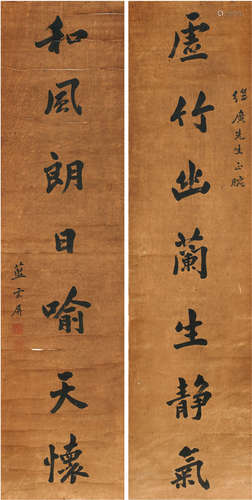 虛竹幽蘭生靜氣
先生正腕
和風朗日喻天懷
藍雲屏